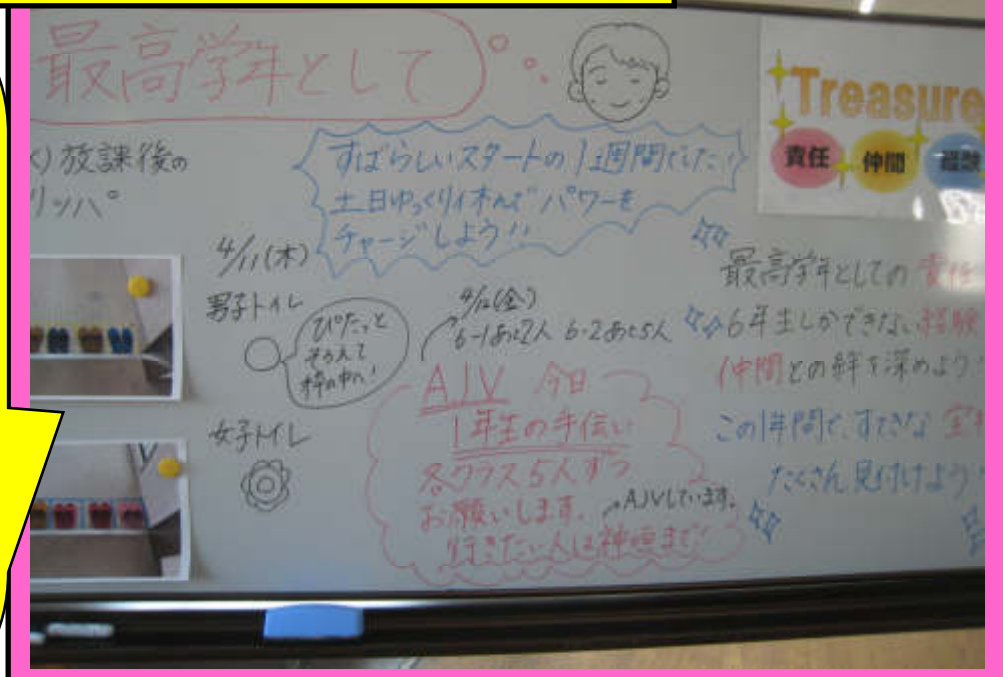 最高学年として
Treasure
責任 仲間 経験
放課後の
リッパ°
すばらしいスタートの1週間でした!
土日ゆっくり休んでパワーを
チャージしよう!!
4/11(木)
男子トイレ
ぴたっと
そろえて
枠の中へ!
女子トイレ
4/12(金)
6-1あと2人 6-2あと5人
AJV 今日
1年生の手伝い
各クラス5人ずつ
お願いします。
AJVしています。
行きたい人は神垣まで
最高学年としての責任
6年生しかできない経験
仲間との絆を深めよう
この1年間で、すてきな宝
たくさん見付けよう